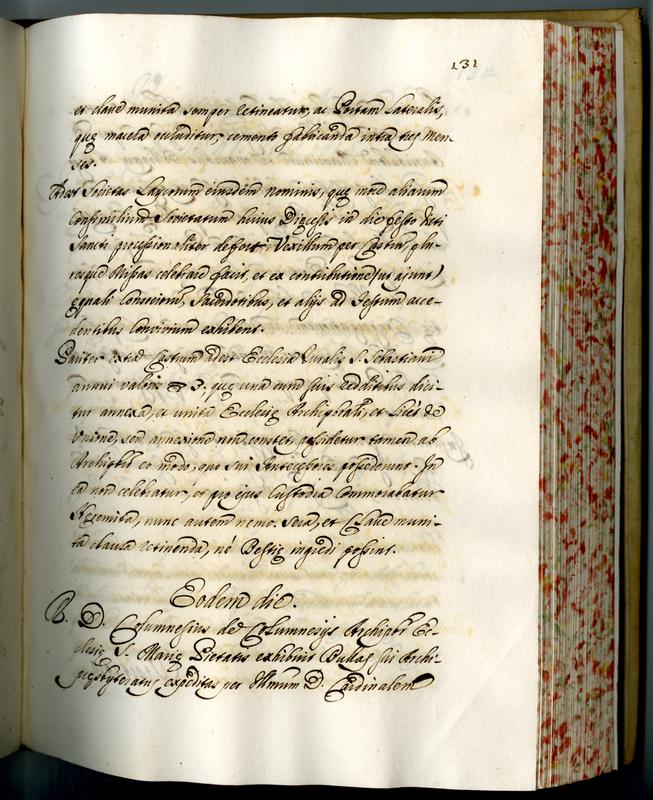 131
et clave munita semper retineatur, ac Portam lateralis,
quę maceria ocluditur, cemento fabricanda intra tres men-
ses.
Adest Societas Laycorum eiusdem nominis, quę more aliarum
Consimilium Societatum huius Dięcesis in die festo dicti
Sancti processionaliter defert Vexillum per Castrum, plu-
resque Missas celebrare facit, et ex contributione (ut ajunt)
ęquali Consociorum, Sacerdotibus, et alijs ad Festum acce-
dentibus Convivium exhibent.
Pariter extra Castrum adest Ecclesia Ruralis S. Sebastiani
annui valoris 3. quę una cum suis redditibus dici-
tur annexa, et unita Ecclesię Archipresbiterali, et licet de
Unione, seu annexione non constet, possidetur tamen ab
Archipresbitero eo modo, quo sui Antecessores possederunt. In
ea non celebratur, et pro ejus Custodia Commorabatur
Heremita, nunc autem nemo. Sera, et Clave muni-
ta clausa retinenda, nè Bestię ingredi possint.
Eodem die.
R. D. Columnesius de Columnesijs Archipresbiter Ec-
clesię S. Marię Pietatis exhibuit Bullas sui Archi-
presbyteratus expeditas per Illmum D. Cardinalem